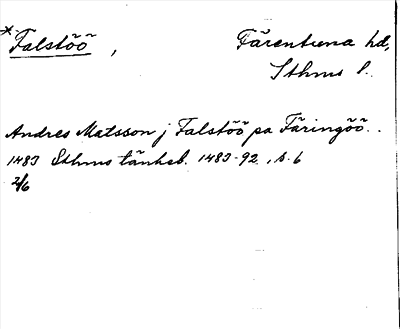 *Falstöö, Färentuna hd,
Sthms l.
Andres Matsson j Falstöö pa Färingöö.
1483 Sthms tänkeb. 1483-92, s. 6
2/6